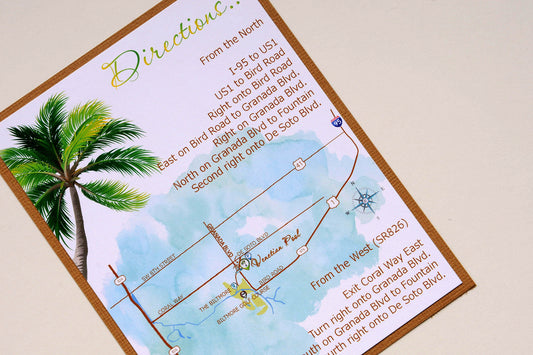 Directions..
From the North
I-95 to US1
US1 to Bird Road
Right onto Bird Road
East on Bird Road to Granada Blvd.
Right on Granada Blvd.
North on Granada Blvd to Fountain
Second right onto De Soto Blvd.
SW 8TH STREET
GRANADA BLVD
DE SOTO BLVD
Venetian Pool
CORAL WAY
BIRD ROAD
THE BILTMORE
BILTMORE GOLF COURSE
From the West (SR826)
Exit Coral Way East
Turn right onto Granada Blvd.
on Granada Blvd to Fountain
right onto De Soto Blvd.